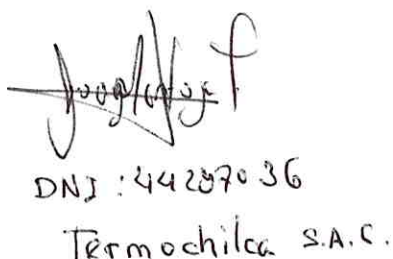 DNI : 44297036
Termochilca S.A.C.